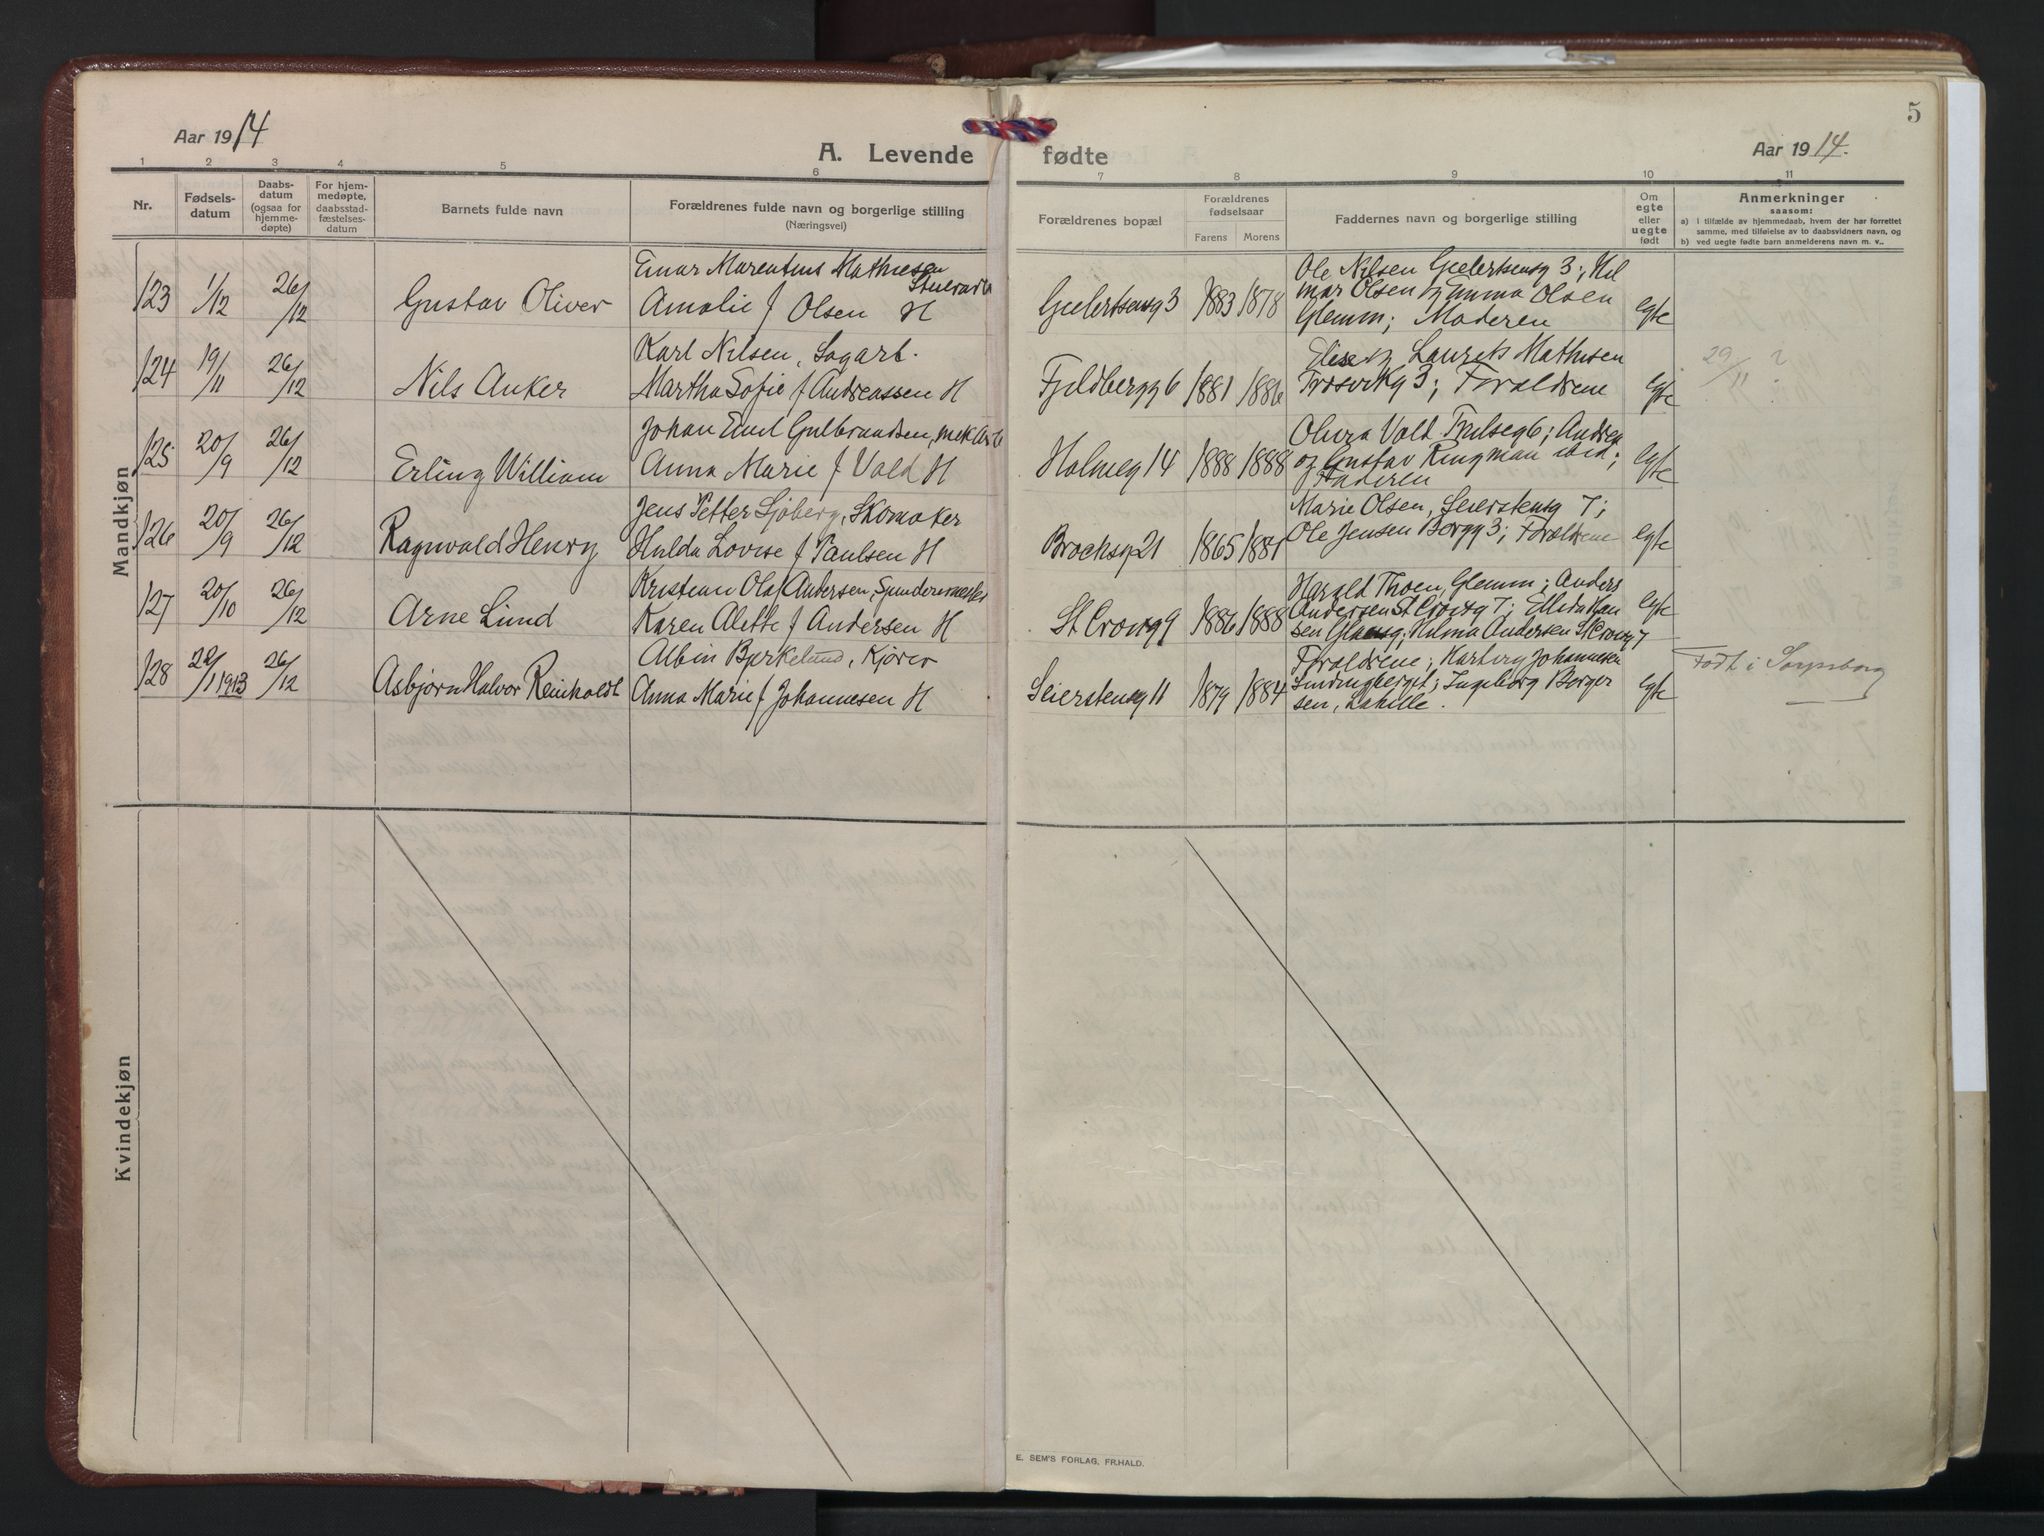 5
Aar 1914
A. Levende fødte
Aar 1914.
1 2 3 4 5 6 7 8 9 10 11
Nr.
Fødsels-
datum
Daabs-
datum
(ogsaa for
hjemme-
døpte)
For hjem-
medøpte,
daabsstad-
fæstelses-
datum
Barnets fulde navn
Forældrenes fulde navn og borgerlige stilling
(Næringsvei)
Forældrenes bopæl
Forældrenes
fødselsaar
Farens Morens
Faddernes navn og borgerlige stilling
Om
egte
eller
uegte
født
Anmerkninger
saasom:
a) I tilfælde av hjemmedaab, hvem der har forrettet
samme, med tilføielse av to daabsvidners navn, og
b) ved uegte fødte barn anmelderens navn m. v..
Mandkjøn
123 1/12 26/12 Gustav Oliver
Einar Marentius Mathiesen
Amalie f Olsen H
Geelertseng 3 1883 1878
Ole Nilsen Geelertseng 3; Hil
mar Olsen og Emma Olsen
Glemm; Moderen
egte
124 19/11 26/12 Nils Anker
Karl Nilsen, Sagarb.
Martha Sofie f Andreassen H
Fjeldbergg 6 1881 1886
Elise og Laurits Mathisen
Trosvikg 3; Forældrene
egte
29/11 ?
125 20/9 26/12 Erling William
Johan Emil Gulbrandsen, mek Arb
Anna Marie f Vold H
Holmeg 14 1888 1888
Olivia Vold Trulseg 6; Andrea
og Gustav Ringman ibid;
Faderen
egte
126 20/9 26/12 Ragnvald Henry
Jens Petter Sjøberg, Skomaker
Hulda Lovise f Paulsen H
Brochsg 21 1865 1881
Marie Olsen, Seierstensg 7;
Ole Jensen Borgg 3; Forældrene
egte
127 20/10 26/12 Arne Lund
Kristian Olaf Andersen,
Karen Alette f Andersen H
St Croixg 9 1886 1888
Harald Thoen, Glemm; Anders
Andersen St Croixg 7; Ellida Han
sen Glassg; Hilma Andersen St Croixg 7
egte
128 22/1 1913 26/12 Asbjørn Halvor Reinholdt
Albin Bjerkelund, Kjører
Anna Marie f Johannesen H
Seierstensg 11 1879 1884
Forældrene; Harberg Johannesen
Lindringberget; Ingeborg Borger
sen, Lahille.
egte
Født i Sarpsborg
Kvindekjøn
E. SEM'S FORLAG, FR.HALD.